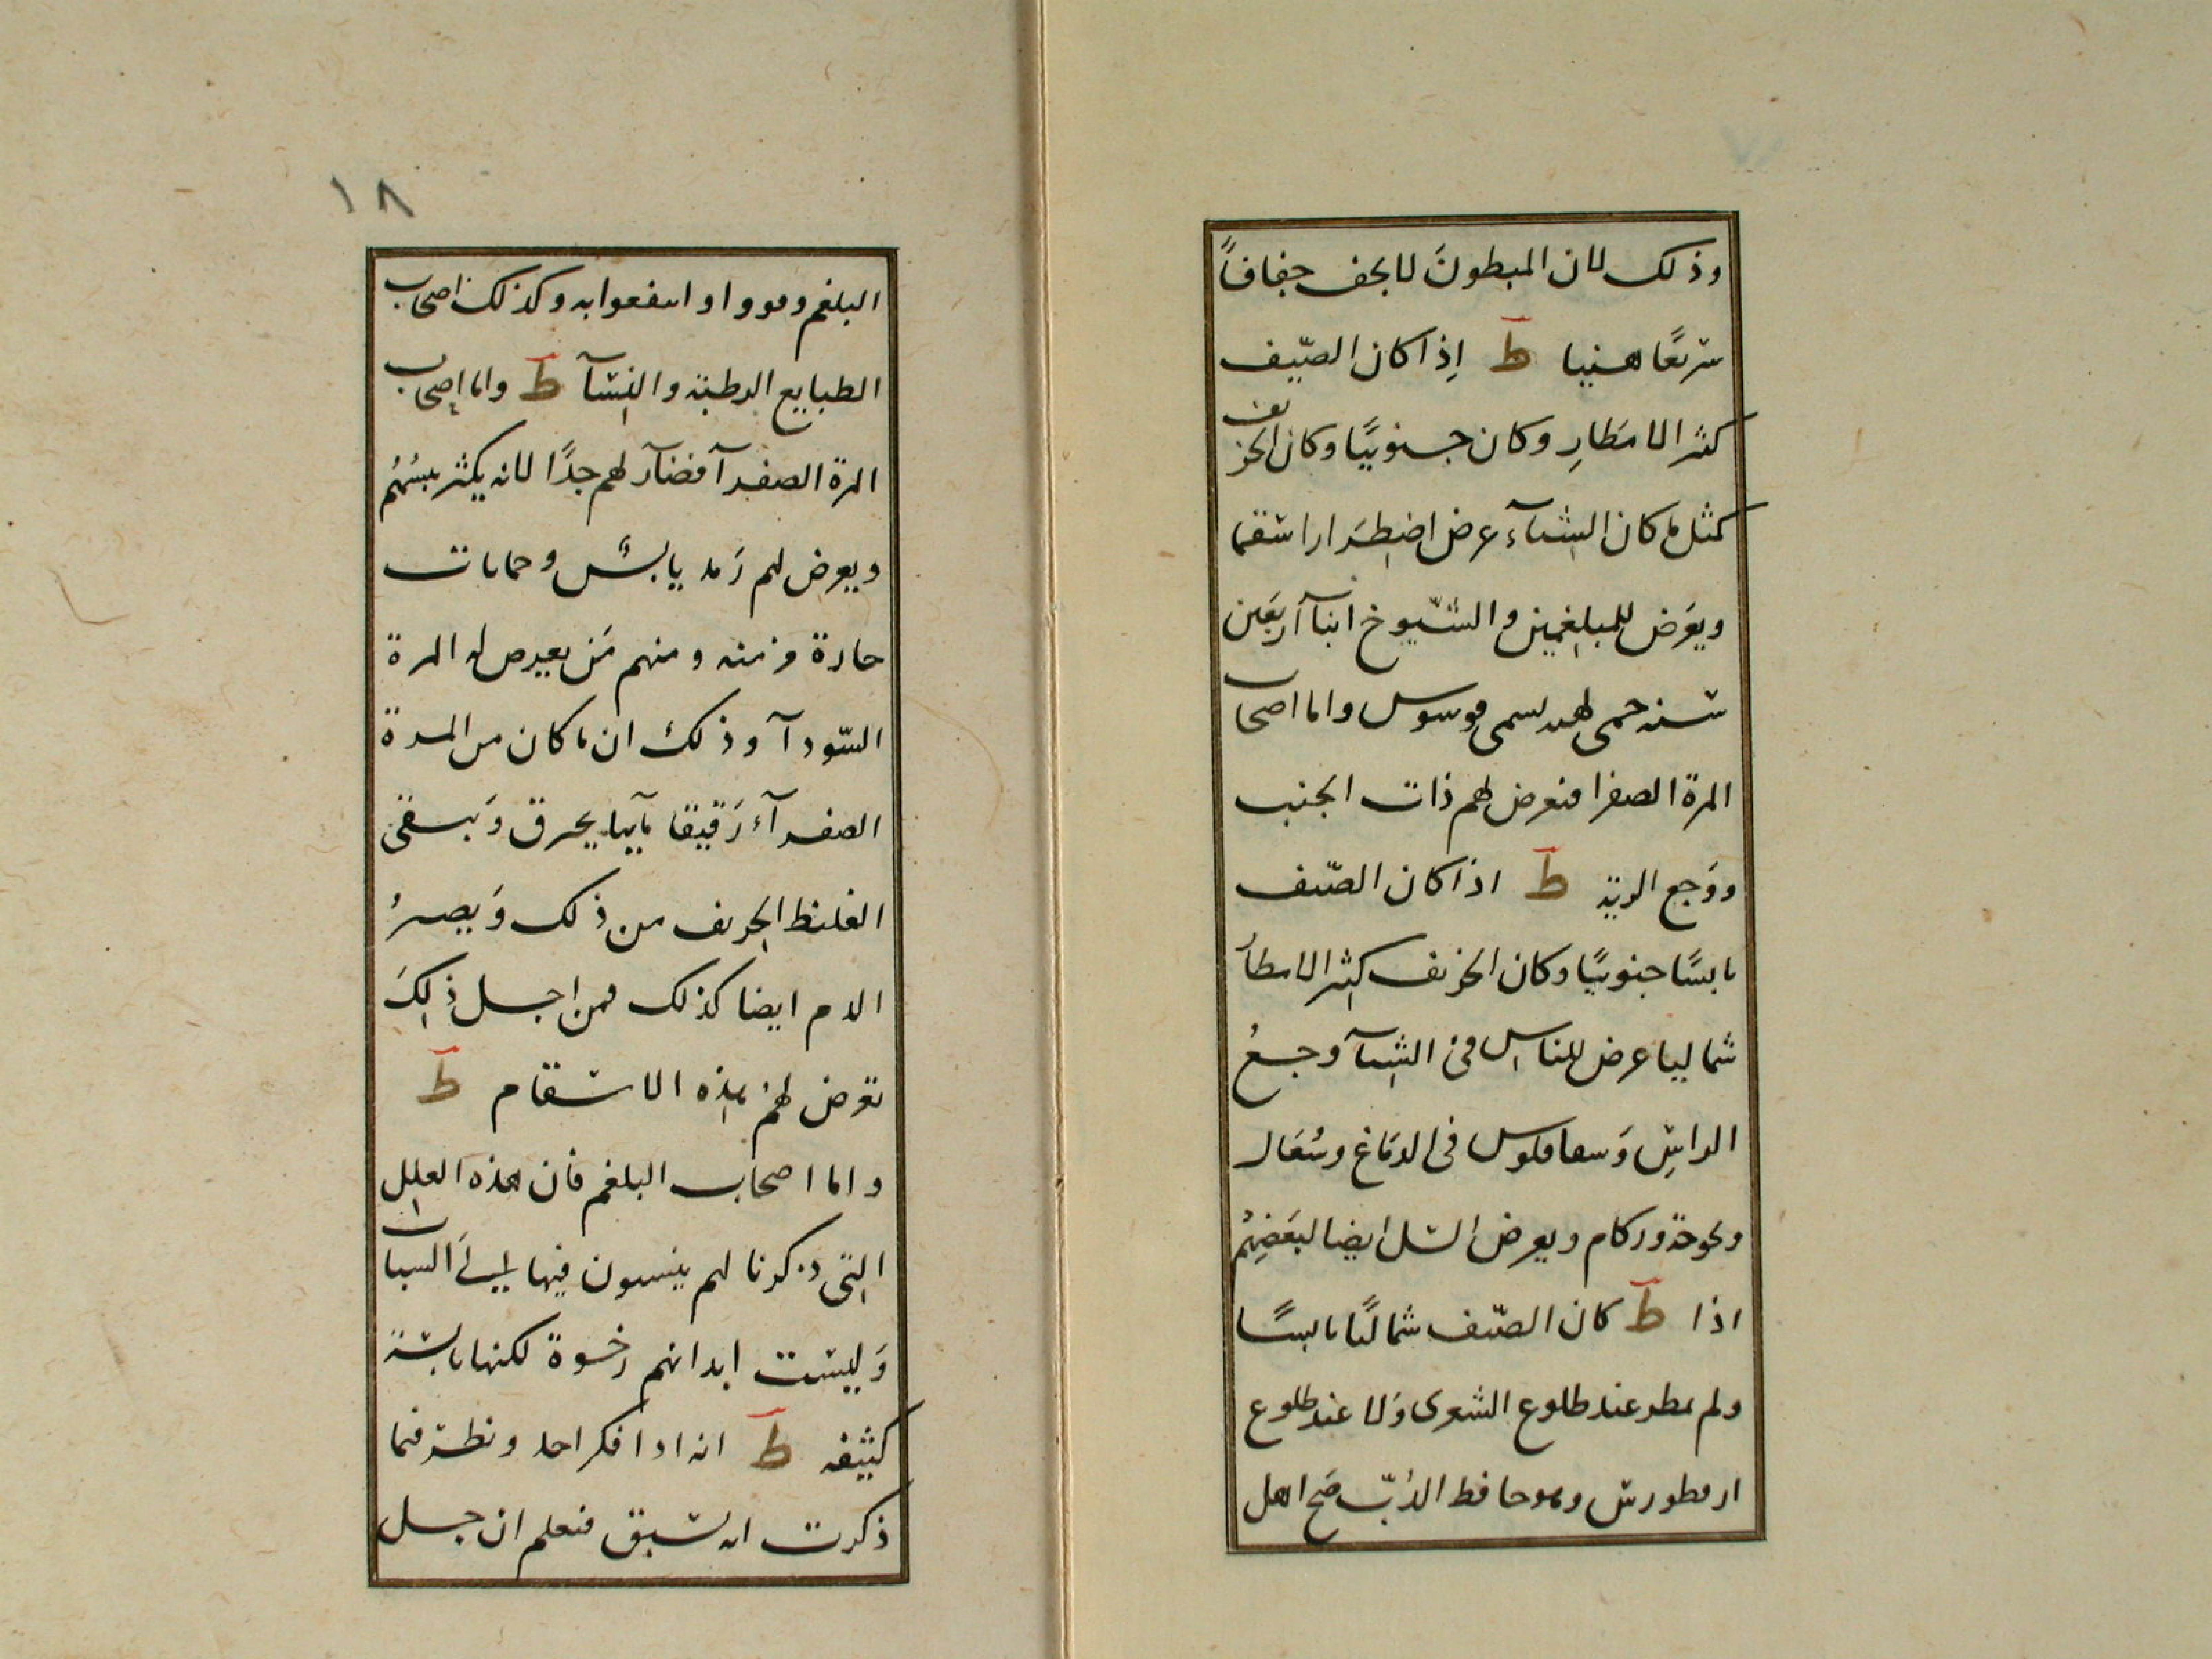 وذلك لان المبطونَ لا يجف جفافاً
سريعًا هنيا ط إذا كان الصّيف
كثير الامطارِ وكان جنوبيًا وكان الخريف
كمثل ما كان الشتآء عرض اضطرارا سقما
ويعرض للبلغميين والشيوخ ابنآ اربعين
سنه حمى لهبه يسمى قوسوس واما اصحاب
المرة الصفرا فيعرض لهم ذات الجنب
ووجع الرية ط اذا كان الصّيف
يابسًا جنوبيًا وكان الخريف كثير الامطار
شماليا عرض للناس في الشتآ وجعُ
الراسِ وسفاقلوس في الدماغ وسُعال
وبحوحة وزكام ويعرض السل ايضا لبعضِهُم
اذا ط كان الصّيف شماليًا يابسًا
ولم يمطر عند طلوع الشعرى ولا عند طلوع
ارقطورس وهو حافظ الدُبّ صح اهل
١٨
البلغم وقووا وانتفعوا به وكذلك اصحاب
الطبايع الرطبة والنسآ ط واما اصحاب
المرة الصفرآ فضآر لهم جدًا لانه يكثر يبسُهُم
ويعرض لهم رَمد يابسٌ وحمايات
حارة مزمنه ومنهم مَن يعرض له المرة
السّودآ وذلك ان ما كان من المرة
الصفرآء رَقيقا مآييا يحرق وَيبقى
الغليظ الحريف من ذلك وَيصيرُ
الدم ايضا كذلك فمن اجل ذلِكَ
تعرض لهم هذه الاسقام ط
واما اصحاب البلغم فان هذه العلل
التي ذكرنا لم ينسبون فيها الى السبات
وَليست ابدانهم رخوة لكنها يابسة
كثيفه ط انه اذا فكر احد ونظر فيما
ذكرت انه سبق فيعلم ان جل